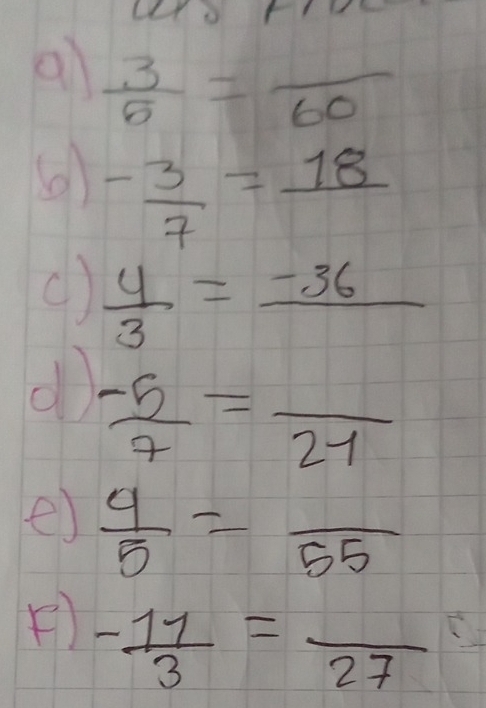 a) 3/5 = __/60
b) -3/7 = 18/__
c) 4/3 = -36/__
d) -5/7 = __/21
e) 9/5 = __/55
F) -11/3 = __/27